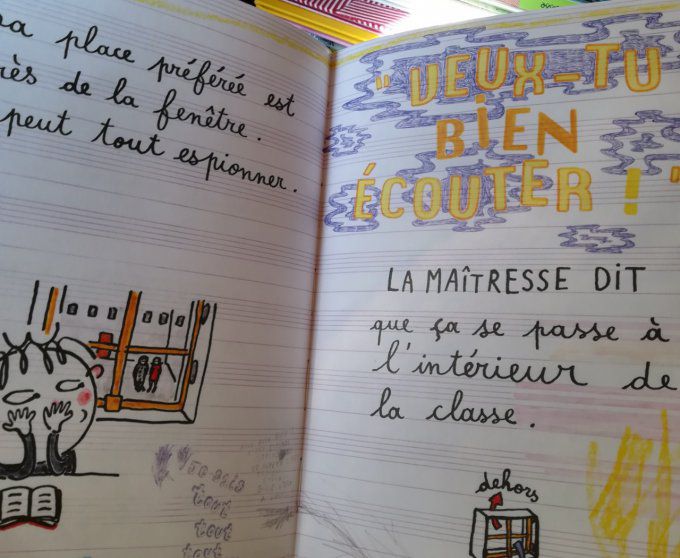 place préférée est
de la fenêtre.
peut tout espionner.
tout
tout
"VEUX-TU
BiEN
ÉCOUTER !"
LA MAîTRESSE DiT
que ça se passe à
l'intérieur de
la classe.
dehors